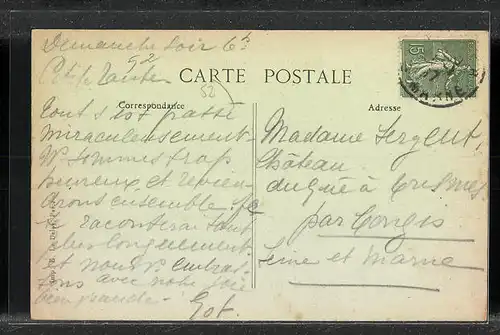 Demanche soir 6h
92
Petite Tante
52
CARTE POSTALE
Correspondance
Adresse
15
MARNE
Tout s'est passé
miraculeusement
Ns sommes trop
heureux et revien-
drons ensemble. Je
te raconterai tout
plus longuement
et nous t'embras-
sons avec notre joie
bien grande.
Got.
Madame Sergent,
Château
du gué à
par Congis
Seine et Marne